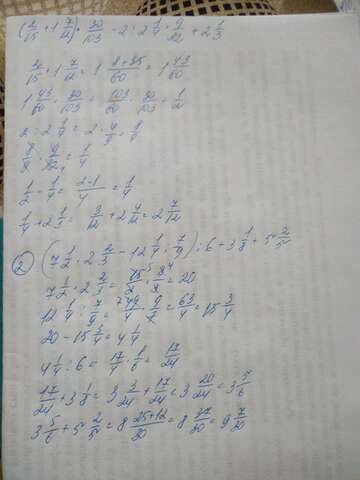 (2/15 + 1 7/12) · 30/103 - 2 : 2 1/4 · 9/32 + 2 1/3
2/15 + 1 7/12 = 1 8+35/60 = 1 43/60
1 43/60 · 30/103 = 103/60 · 30/103 = 1/2
2 : 2 1/4 = 2 · 4/9 = 8/9
8/9 · 9/32 = 1/4
1/2 - 1/4 = 2-1/4 = 1/4
1/4 + 2 1/3 = 3/12 + 2 4/12 = 2 7/12
② (7 1/2 · 2 2/3 - 12 1/4 : 7/9) : 6 + 3 1/8 + 5 2/5
7 1/2 · 2 2/3 = 15/2 · 8/3 = 20
12 1/4 : 7/9 = 49/4 · 9/7 = 63/4 = 15 3/4
20 - 15 3/4 = 4 1/4
4 1/4 : 6 = 17/4 · 1/6 = 17/24
17/24 + 3 1/8 = 3 3/24 + 17/24 = 3 20/24 = 3 5/6
3 5/6 + 5 2/5 = 8 25+12/30 = 8 37/30 = 9 7/30